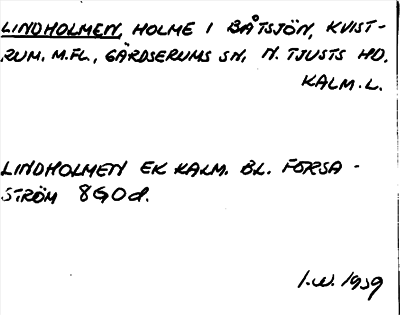 LINDHOLMEN, HOLME I BÅTSJÖN, KVIST-
RUM. M.FL., GÄRDSERUMS SN, N. TJUSTS HD.
KALM. L.
LINDHOLMEN EK KALM. BL. FORSA -
STRÖM 8G0d.
I.W. 1939